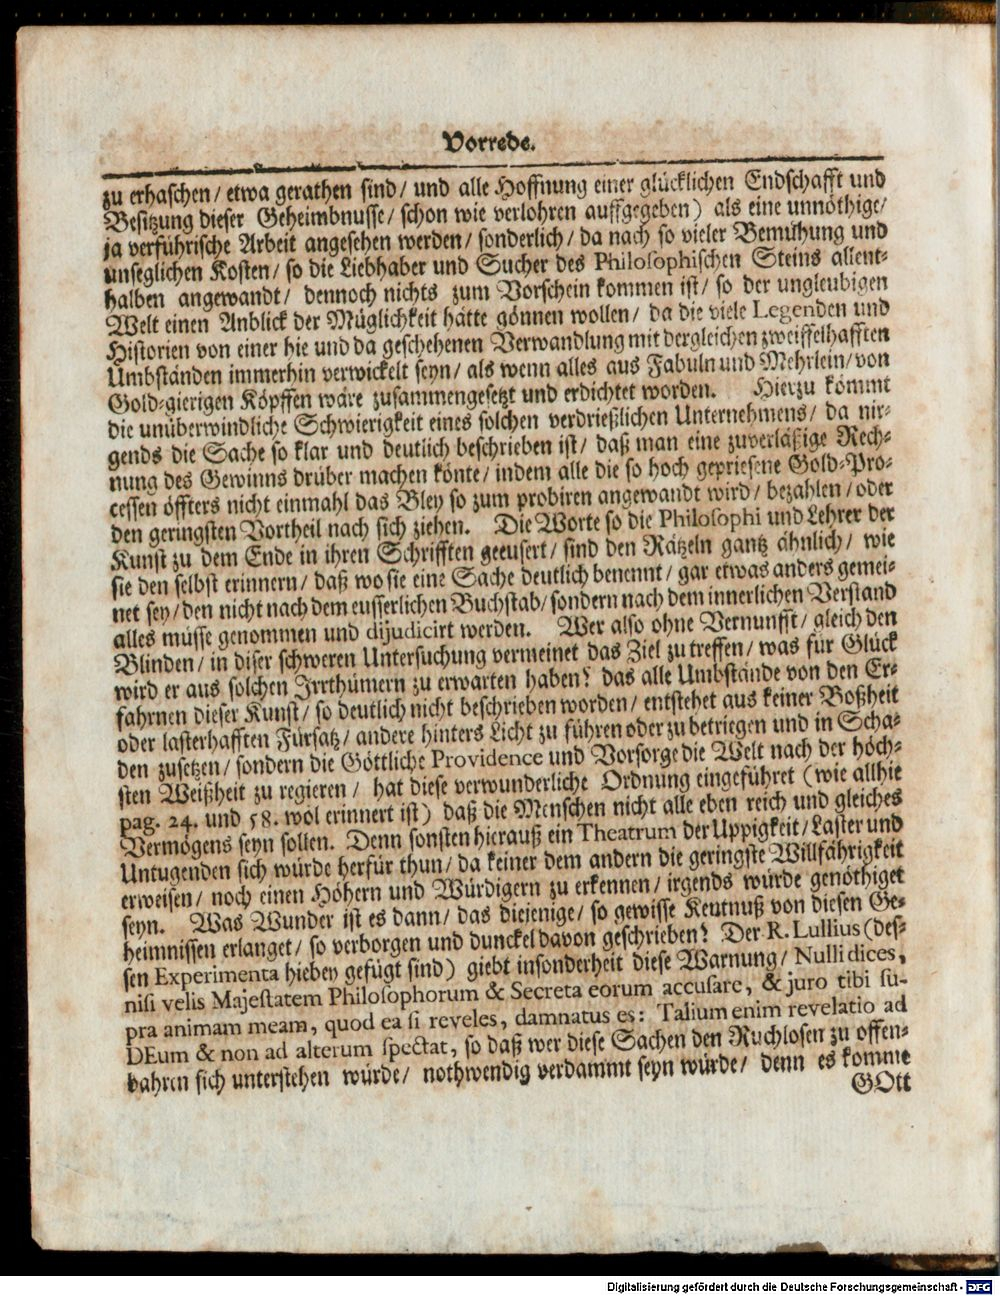 Vorrede.
zu erhaschen / etwa gerathen sind / und alle Hoffnung einer glücklichen Endschafft und
Besitzung dieser Geheimbnusse / schon wie verlohren auffgegeben) als eine unnöthige /
ja verführische Arbeit angesehen werden / sonderlich / da nach so vieler Bemühung und
unseglichen Kosten / so die Liebhaber und Sucher des Philosophischen Steins allent-
halben angewandt / dennoch nichts zum Vorschein kommen ist / so der ungleubigen
Welt einen Anblick der Müglichkeit hätte gönnen wollen / da die viele Legenden und
Historien von einer hie und da geschehenen Verwandlung mit dergleichen zweiffelhafften
Umbständen immerhin verwickelt seyn / als wenn alles aus Fabuln und Mehrlein / von
Gold-gierigen Köpffen wäre zusammengesetzt und erdichtet worden. Hierzu kömmt
die unüberwindliche Schwierigkeit eines solchen verdrießlichen Unternehmens / da nir-
gends die Sache so klar und deutlich beschrieben ist / daß man eine zuverläßige Rech-
nung des Gewinns drüber machen könte / indem alle die so hoch gepriesene Gold-Pro-
cessen öffters nicht einmahl das Bley so zum probiren angewandt wird / bezahlen / oder
den geringsten Vortheil nach sich ziehen. Die Worte so die Philosophi und Lehrer der
Kunst zu dem Ende in ihren Schrifften geeusert / sind den Rätzeln gantz ähnlich / wie
sie den selbst erinnern / daß wo sie eine Sache deutlich benennt / gar etwas anders gemei-
net sey / den nicht nach dem eusserlichen Buchstab / sondern nach dem innerlichen Verstand
alles müsse genommen und dijudicirt werden. Wer also ohne Vernunfft / gleich den
Blinden / in diser schweren Untersuchung vermeinet das Ziel zu treffen / was für Glück
wird er aus solchen Irrthümern zu erwarten haben? das alle Umbstände von den Er-
fahrnen dieser Kunst / so deutlich nicht beschrieben worden / entstehet aus keiner Boßheit
oder lasterhafften Fürsatz / andere hinters Licht zu führen oder zu betriegen und in Scha-
den zusetzen / sondern die Göttliche Providence und Vorsorge die Welt nach der höch-
sten Weißheit zu regieren / hat diese verwunderliche Ordnung eingeführet (wie allhie
pag. 24. und 58. wol erinnert ist) daß die Menschen nicht alle eben reich und gleiches
Vermögens seyn sollen. Denn sonsten hierauß ein Theatrum der Uppigkeit / Laster und
Untugenden sich würde herfür thun / da keiner dem andern die geringste Willfährigkeit
erweisen / noch einen Höhern und Würdigern zu erkennen / irgends würde genöthiget
seyn. Was Wunder ist es dann / das diejenige / so gewisse Kentnuß von diesen Ge-
heimnissen erlanget / so verborgen und dunckel davon geschrieben? Der R. Lullius (des-
sen Experimenta hiebey gefügt sind) giebt insonderheit diese Warnung / Nulli dices,
nisi velis Majestatem Philosophorum & Secreta eorum accusare, & juro tibi su-
pra animam meam, quod ea si reveles, damnatus es: Talium enim revelatio ad
DEum & non ad alterum spectat, so daß wer diese Sachen den Ruchlosen zu offen-
bahren sich unterstehen würde / nothwendig verdammt seyn würde / denn es komme
GOtt
Digitalisierung gefördert durch die Deutsche Forschungsgemeinschaft - DFG